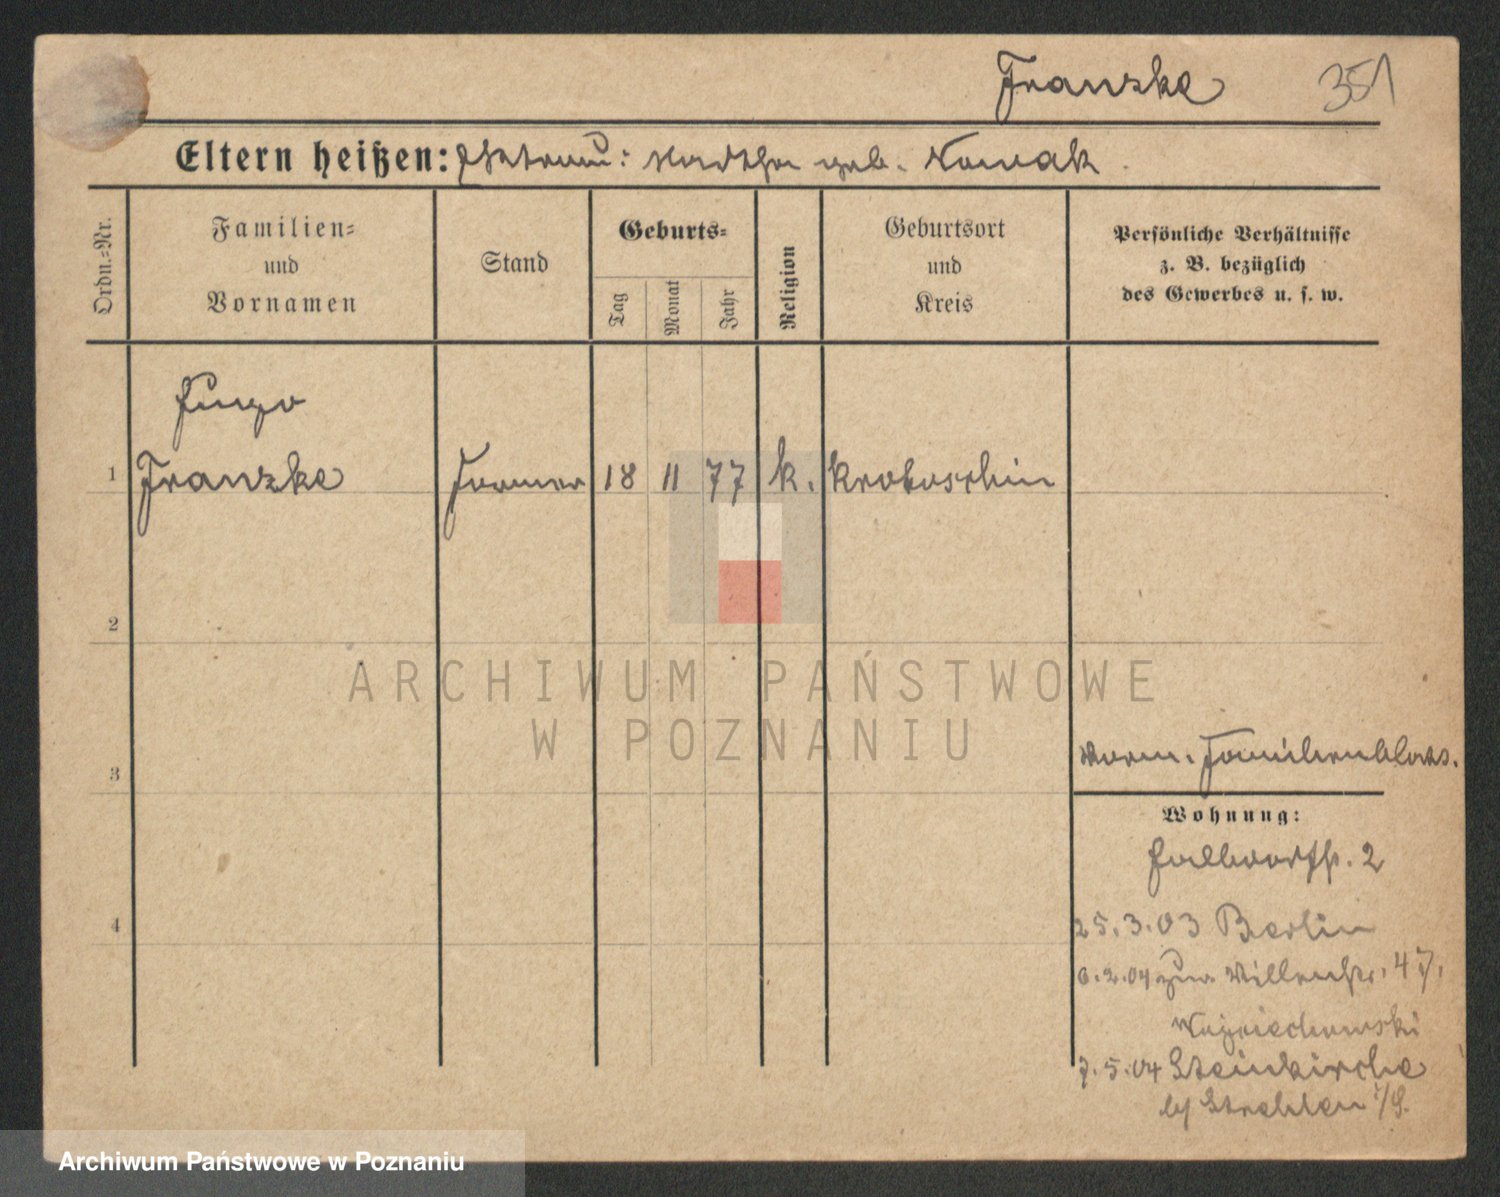 Franzke 351
Eltern heißen: Martha geb. Nowak
Ordn.-Nr.
Familien-
und
Vornamen
Stand
Geburts-
Tag
Monat
Jahr
Religion
Geburtsort
und
Kreis
Persönliche Verhältnisse
z. B. bezüglich
des Gewerbes u. s. w.
Hugo
1 Franzke Former 18 11 77 k. Krotoschin
2
ARCHIWUM PAŃSTWOWE
W POZNANIU
3
Wohnung:
2
4
25.3.03 Berlin
6.2.04 zur. 47,
Wojciechowski
7.5.04 Steinkirche
b/ Strehlen i/S.
Archiwum Państwowe w Poznaniu